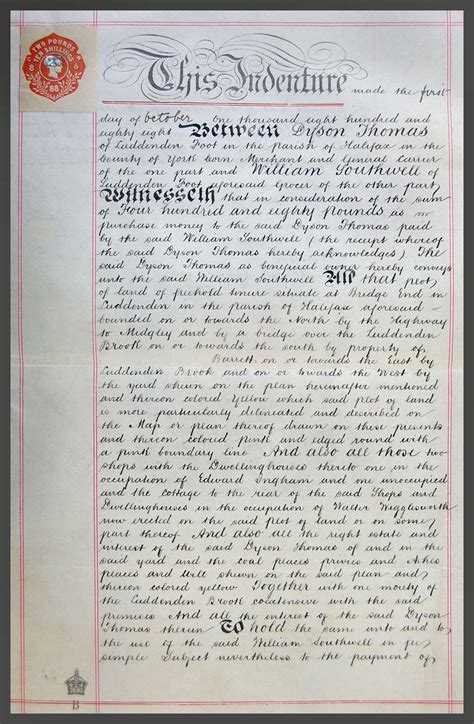 TWO POUNDS
TEN SHILLINGS
88
This Indenture made the first
day of October One thousand eight hundred and
eighty eight Between Dyson Thomas
of Luddenden Foot in the parish of Halifax in the
County of York Corn Merchant and General Carrier
of the one part and William Southwell of
Luddenden Foot aforesaid Grocer of the other part
Witnesseth that in consideration of the sum
of Four hundred and eighty pounds as
purchase money to the said Dyson Thomas paid
by the said William Southwell (the receipt whereof
the said Dyson Thomas hereby acknowledges) The
said Dyson Thomas as beneficial owner hereby conveys
unto the said William Southwell All that plot
of land of freehold tenure situate at Bridge End in
Luddenden in the parish of Halifax aforesaid
bounded on or towards the North by the Highway
to Midgley and by a bridge over the Luddenden
Brook on or towards the south by property of
Barrett on or towards the East by
Luddenden Brook and on or towards the West by
the yard shewn on the plan hereinafter mentioned
and thereon colored Yellow which said plot of land
is more particularly delineated and described on
the Map or plan thereof drawn on these presents
and thereon colored pink and edged round with
a pink boundary line And also all those two
shops with the Dwellinghouses thereto one in the
occupation of Edward Ingham and one unoccupied
and the cottage to the rear of the said Shops and
Dwellinghouses in the occupation of Walter Wigglesworth
now erected on the said plot of land or on some
part thereof And also all the right estate and
interest of the said Dyson Thomas of and in the
said yard and the coal places privies and Ashes
places and Well shewn on the said plan and
thereon colored yellow Together with one moiety of
the Luddenden Brook coextensive with the said
premises And all the interest of the said Dyson
Thomas therein To hold the same unto and to
the use of the said William Southwell in fee
simple Subject nevertheless to the payment of
B